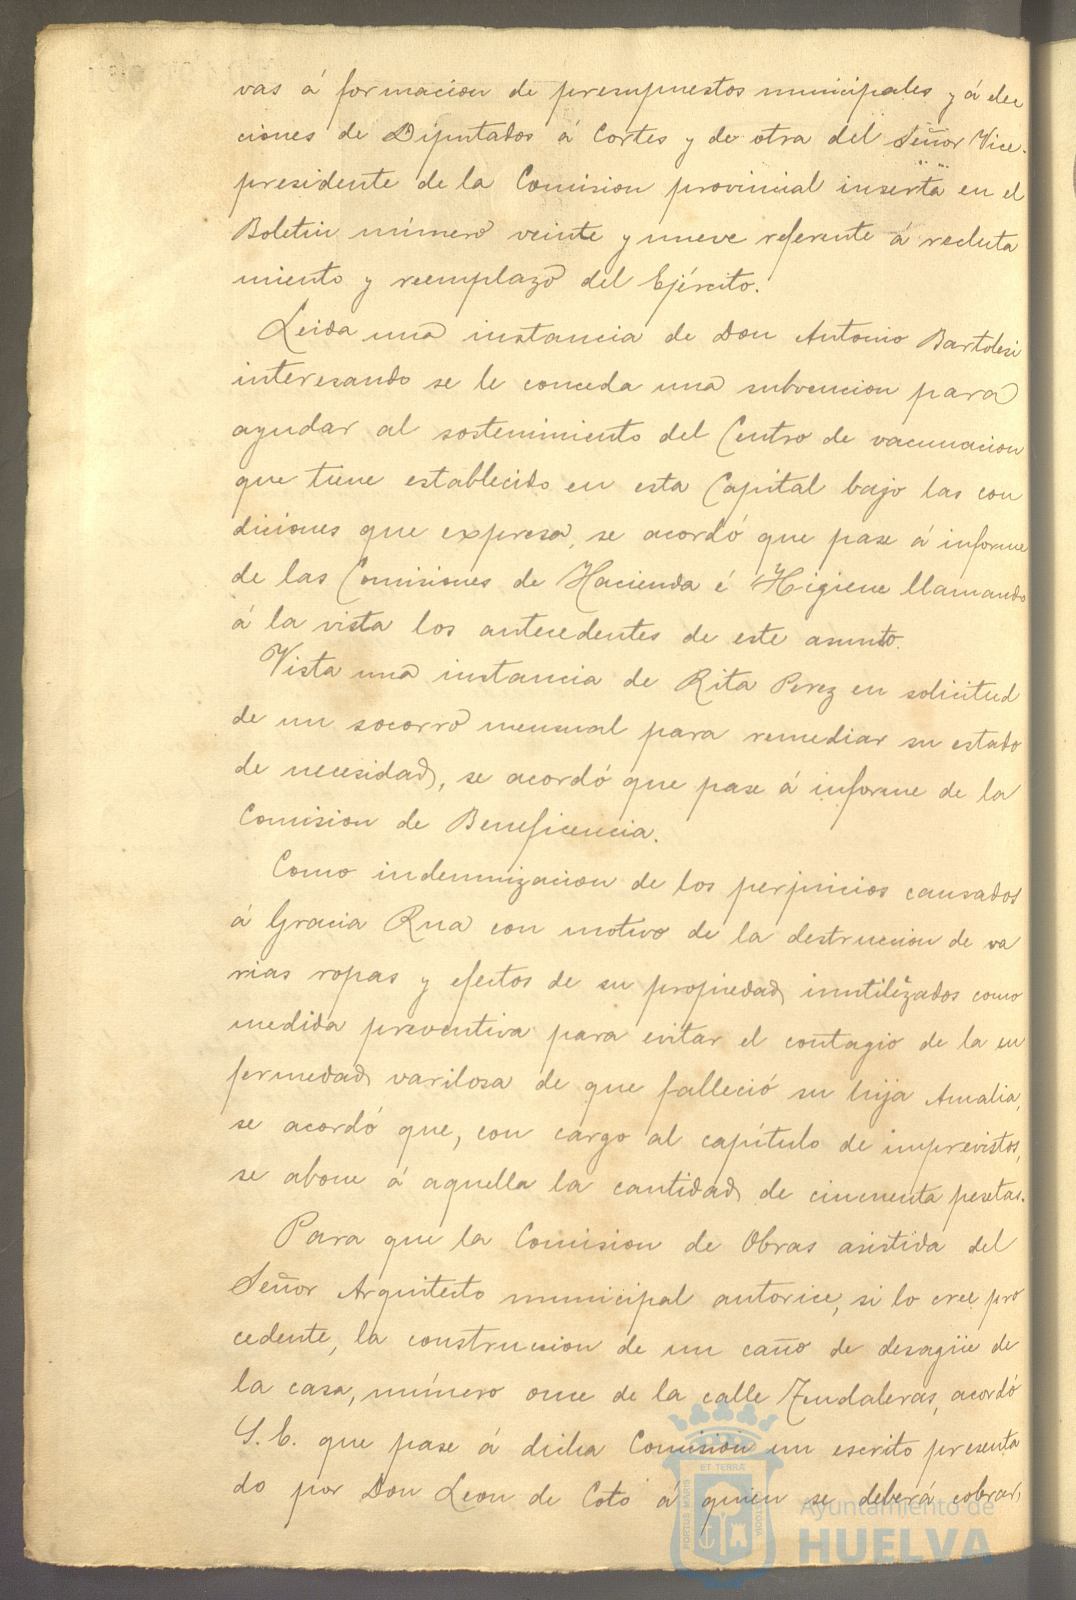 vas á formacion de presupuestos municipales y á elec
ciones de Diputados á Cortes y de otra del Señor Vice-
presidente de la Comision provincial inserta en el
Boletin número veinte y nueve referente á recluta
miento y reemplazo del Ejército.
Leida una instancia de Don Antonio Bartolesi
interesando se le conceda una subvencion para
ayudar al sostenimiento del Centro de vacunacion
que tiene establecido en esta Capital bajo las con
diciones que expresa, se acordó que pase á informe
de las Comisiones de Hacienda é Higiene llamando
á la vista los antecedentes de este asunto.
Vista una instancia de Rita Perez en solicitud
de un socorro mensual para remediar su estado
de necesidad, se acordó que pase á informe de la
Comision de Beneficencia.
Como indemnizacion de los perjuicios causados
á Gracia Rua con motivo de la destruccion de va
rias ropas y efectos de su propiedad, inutilizados como
medida preventiva para evitar el contagio de la en
fermedad varilosa de que falleció su hija Amalia,
se acordó que, con cargo al capítulo de imprevistos,
se abone á aquella la cantidad de cincuenta pesetas.
Para que la Comision de Obras asistida del
Señor Arquitecto municipal autorice, si lo cree pro
cedente, la construccion de un caño de desagüe de
la casa, número once de la calle Zendaleras, acordó
S. E. que pase á dicha Comision un escrito presenta
do por Don Leon de Coto á quien se deberá cobrar,
ET TERRA
PORTUS MARIS
CUSTODIA
Ayuntamiento de
HUELVA